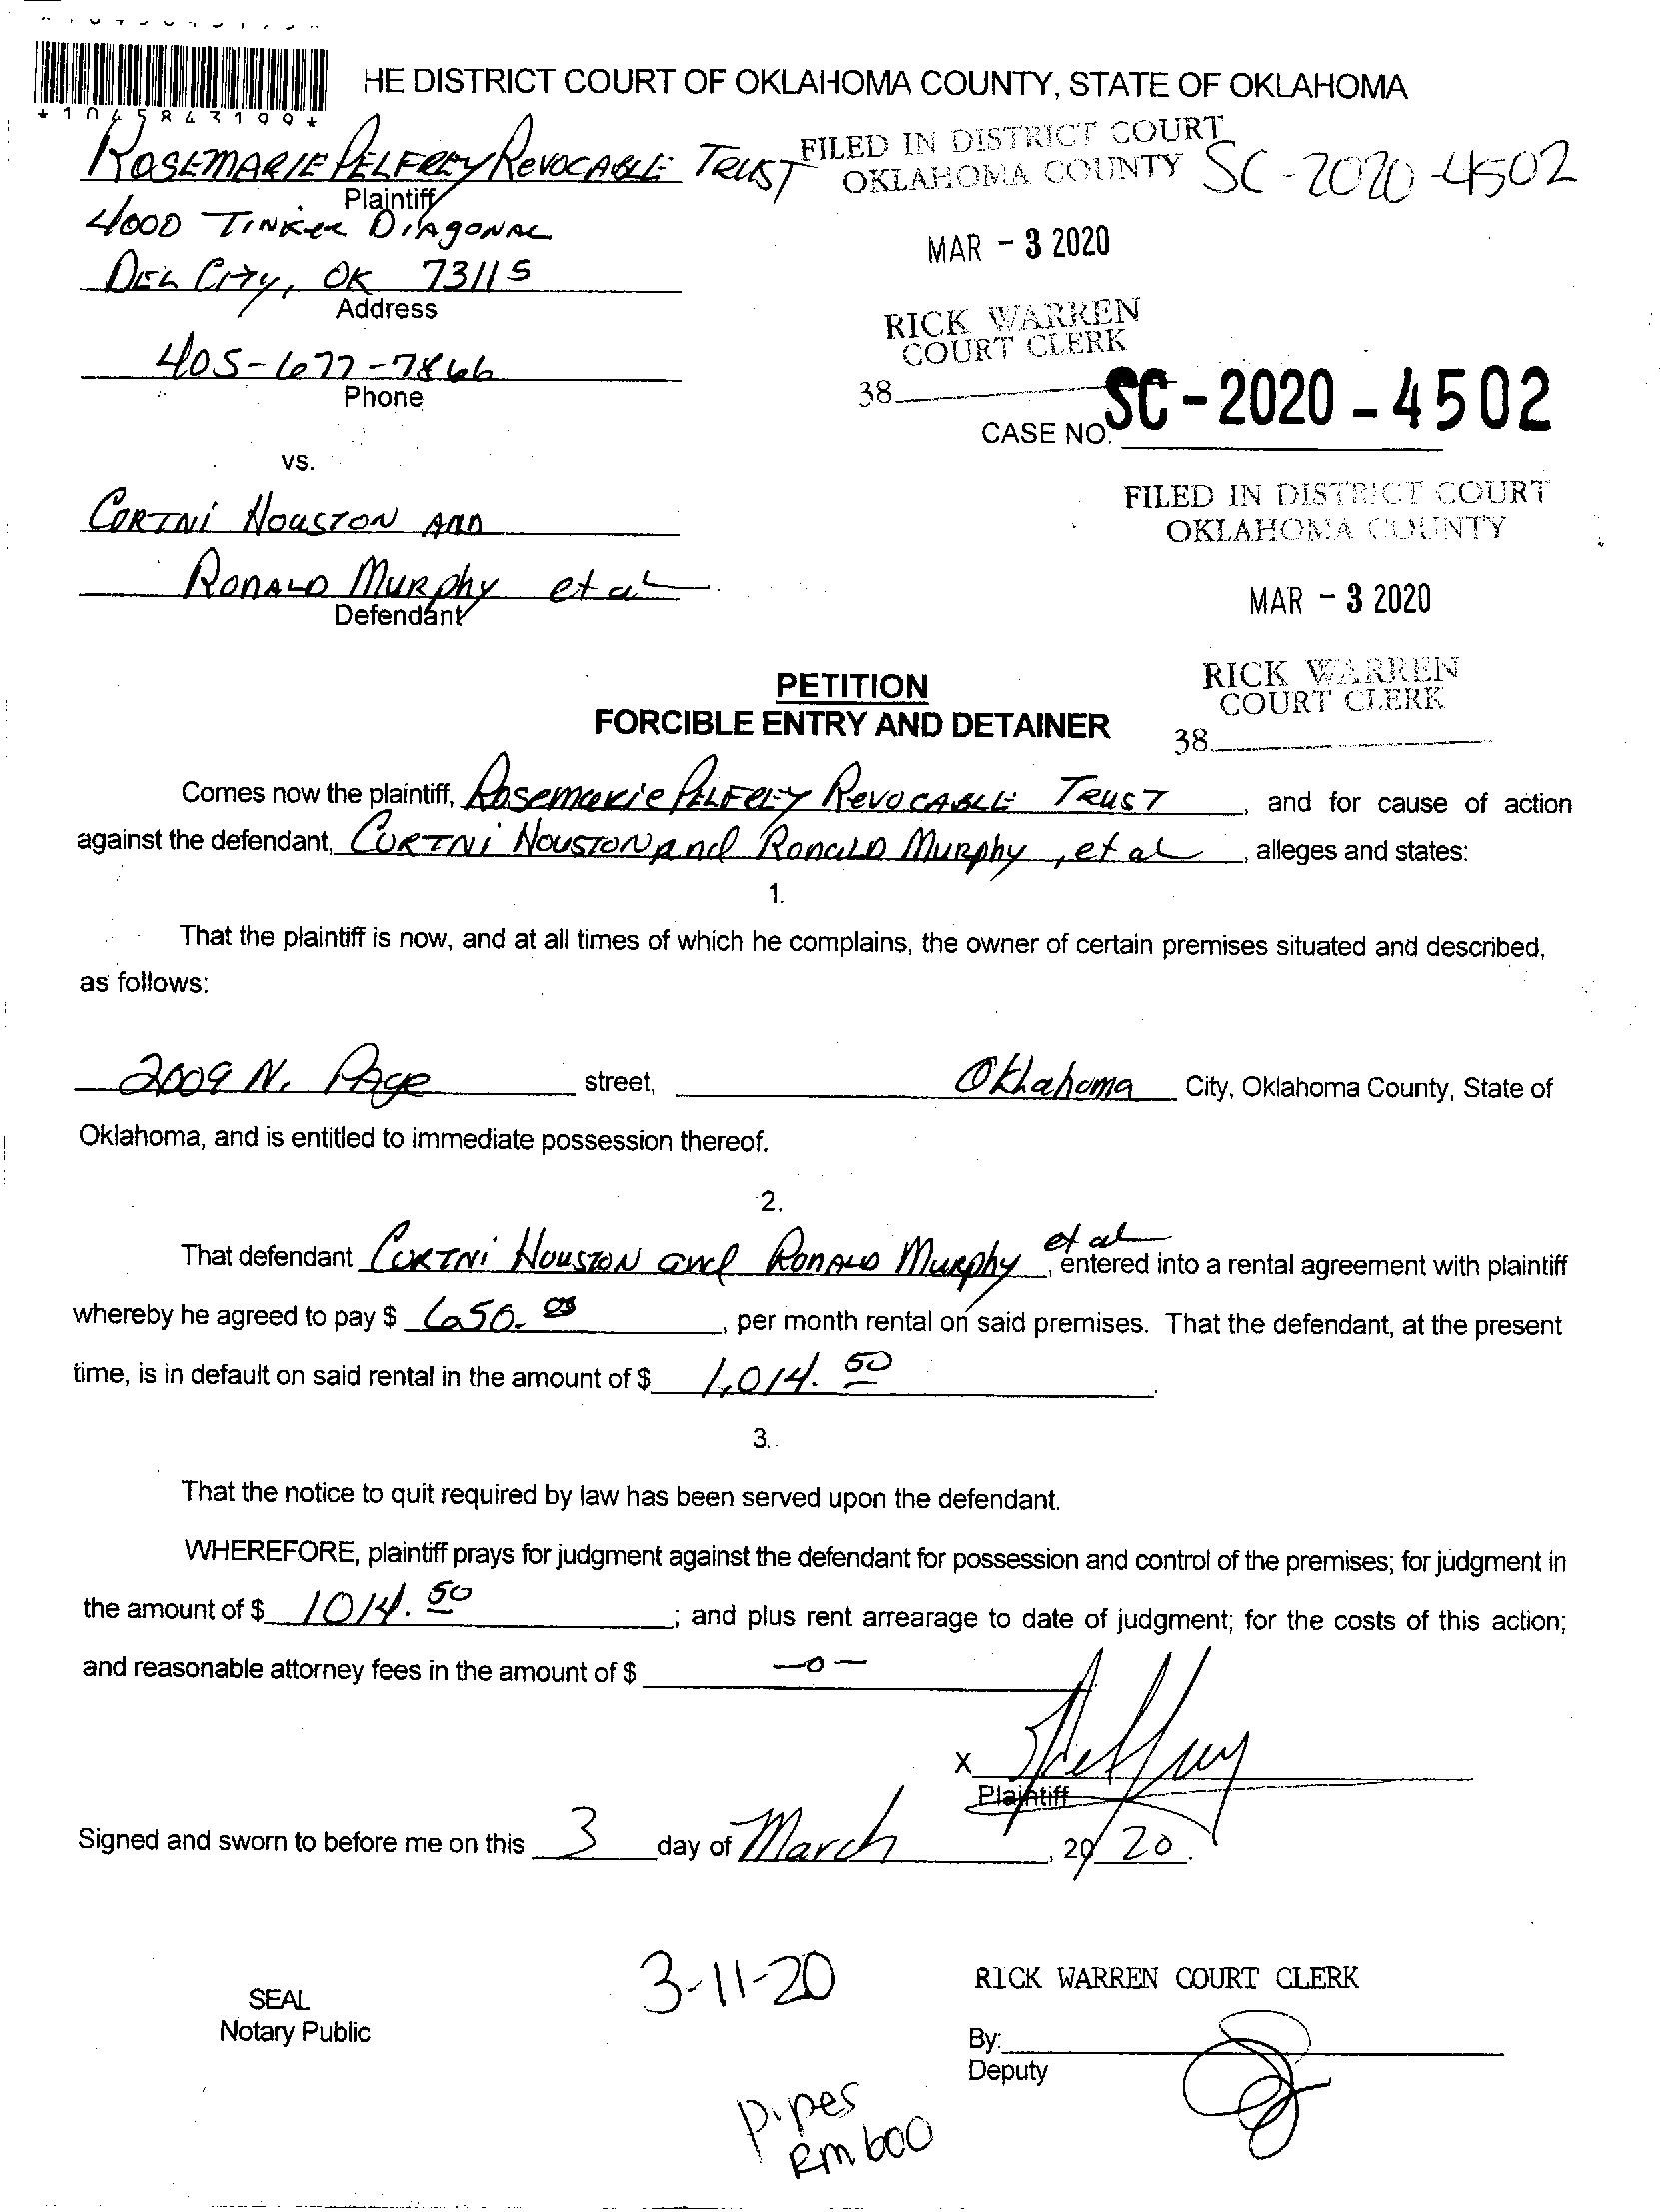 *1045843199*
HE DISTRICT COURT OF OKLAHOMA COUNTY, STATE OF OKLAHOMA
ROSEMARIE PELFREY REVOCABLE TRUST
Plaintiff
4000 TINKER DIAGONAL
DEL CITY, OK 73115
Address
405-677-7866
Phone
FILED IN DISTRICT COURT
OKLAHOMA COUNTY
SC-2020-4502
MAR - 3 2020
RICK WARREN
COURT CLERK
38
CASE NO. SC-2020-4502
vs.
CORTNI HOUSTON AND
RONALD MURPHY et al
Defendant
FILED IN DISTRICT COURT
OKLAHOMA COUNTY
MAR - 3 2020
RICK WARREN
COURT CLERK
38
PETITION
FORCIBLE ENTRY AND DETAINER
Comes now the plaintiff, Rosemarie PELFREY REVOCABLE TRUST, and for cause of action
against the defendant, CORTNI HOUSTON and RONALD MURPHY, et al, alleges and states:
1.
That the plaintiff is now, and at all times of which he complains, the owner of certain premises situated and described,
as follows:
2009 N. Page street, Oklahoma City, Oklahoma County, State of
Oklahoma, and is entitled to immediate possession thereof.
2.
That defendant CORTNI HOUSTON and RONALD MURPHY et al, entered into a rental agreement with plaintiff
whereby he agreed to pay $ 650.00, per month rental on said premises. That the defendant, at the present
time, is in default on said rental in the amount of $ 1,014.50.
3.
That the notice to quit required by law has been served upon the defendant.
WHEREFORE, plaintiff prays for judgment against the defendant for possession and control of the premises; for judgment in
the amount of $ 1014.50; and plus rent arrearage to date of judgment; for the costs of this action;
and reasonable attorney fees in the amount of $ -0-
X
Plaintiff
Signed and sworn to before me on this 3 day of March, 20 20.
SEAL
Notary Public
3-11-20
RICK WARREN COURT CLERK
By:
Deputy
pipes
Rm 600